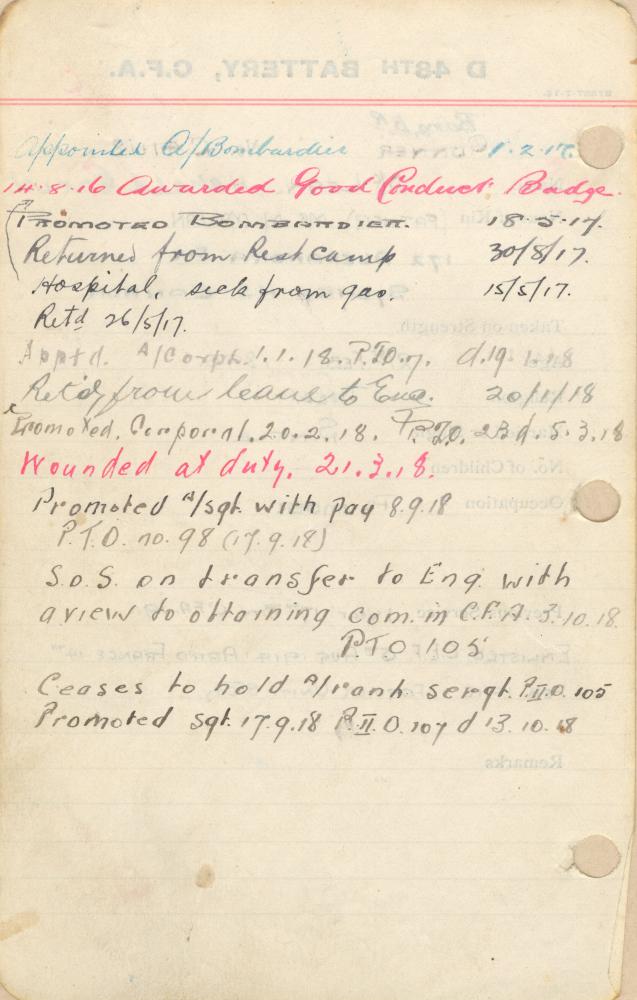 Appointed A/Bombardier 1.2.17.
14.8.16 Awarded Good Conduct Badge.
Promoted Bombardier. 18.5.17.
Returned from Rest camp 30/8/17.
Hospital, sick from gas. 15/5/17.
Retd 26/5/17.
Apptd. A/Corpl. 1.1.18. P.T.O. 7. d. 19.1.18
Ret'd from leave to Eng. 20/1/18
Promoted. Corporal. 20.2.18. 23 d. 5.3.18
Wounded at duty. 21.3.18.
Promoted A/sgt. with pay 8.9.18
P.T.O. no. 98 (17.9.18)
S.o.S. on transfer to Eng. with
a view to obtaining com. in C.F.A. 3.10.18.
P.T.O 105
Ceases to hold A/rank sergt. P.II.O. 105
Promoted sgt. 17.9.18 P.II.O. 107 d 13.10.18